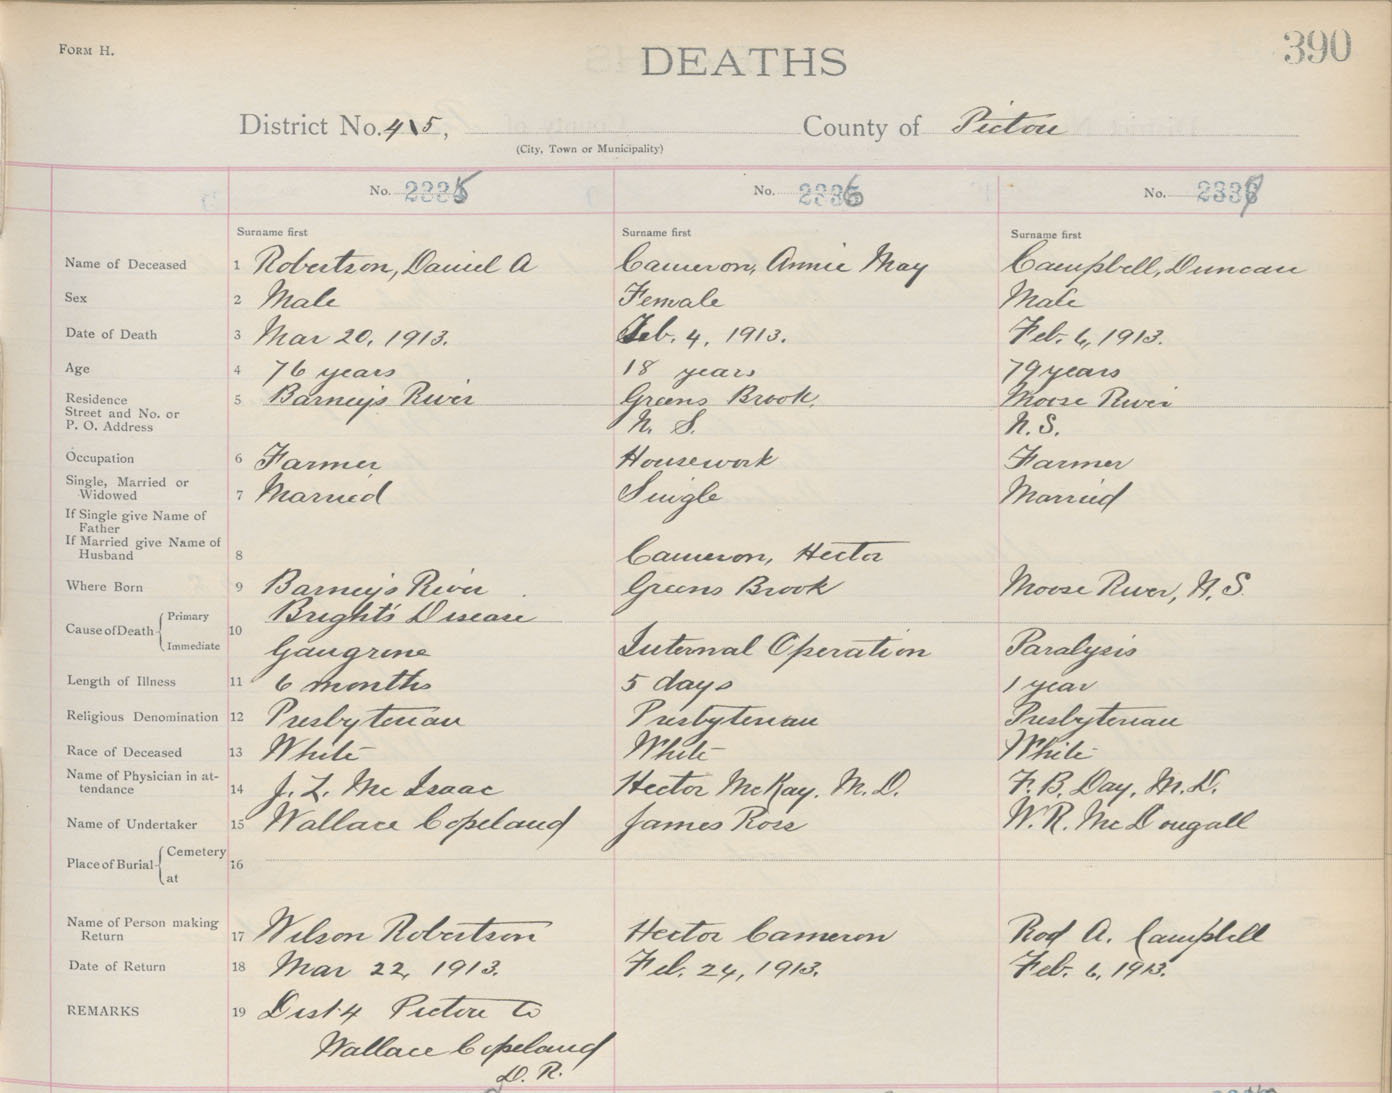 FORM H.
DEATHS
390
District No. 4\5, County of Pictou
(City, Town or Municipality)
No. 2335 No. 2336 No. 2337
Surname first Surname first Surname first
Name of Deceased 1 Robertson, Daniel A Cameron, Annie May Campbell, Duncan
Sex 2 Male Female Male
Date of Death 3 Mar 20, 1913. Feb. 4, 1913. Feb. 6, 1913.
Age 4 76 years 18 years 79 years
Residence 5 Barney's River Greens Brook, Moose River
Street and No. or N. S. N.S.
P. O. Address
Occupation 6 Farmer Housework Farmer
Single, Married or
Widowed 7 Married Single Married
If Single give Name of
Father
If Married give Name of
Husband 8 Cameron, Hector
Where Born 9 Barney's River Greens Brook Moose River, N.S.
Cause of Death Primary 10 Bright's Disease
Immediate Gangrine Internal Operation Paralysis
Length of Illness 11 6 months 5 days 1 year
Religious Denomination 12 Presbyterian Presbyterian Presbyterian
Race of Deceased 13 White White White
Name of Physician in at-
tendance 14 J. L. McIsaac Hector McKay. M.D. F. B. Day, M.D.
Name of Undertaker 15 Wallace Copeland James Ross W. R. McDougall
Place of Burial Cemetery 16
at
Name of Person making
Return 17 Wilson Robertson Hector Cameron Rod A. Campbell
Date of Return 18 Mar 22, 1913. Feb. 24, 1913. Feb. 6, 1913.
REMARKS 19 Dist 4 Pictou Co
Wallace Copeland
D. R.